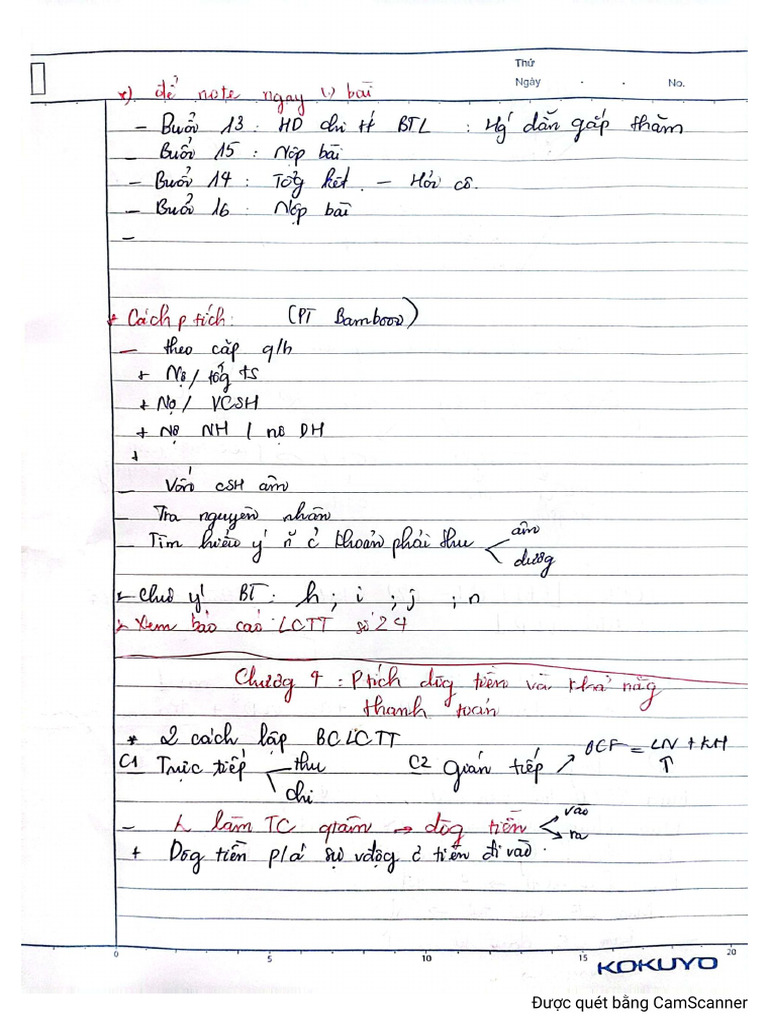 Thứ
Ngày . . No.
*) để note ngay (.) bài
- Buổi 13 : HD chi tt BTL : Hg dẫn gấp thăm
- Buổi 15 : Nộp bài
- Buổi 14 : Tổg kết. - Hỏi cô.
- Buổi 16 : Nộp bài
-
* Cách p tích: (PT Bambooo)
- theo cặp q/h
+ Nợ / tổg ts
+ Nợ / VCSH
+ Nợ NH / nợ DH
+
- Vốn CSH âm
- Tra nguyên nhân
- Tìm hiểu ý n̆ ở khoản phải thu
âm
dươg
* Chú ý BT : h ; i ; j ; n
* Xem báo cáo LCTT số 24
Chươg 4 : P tích dòg tiền và khả năg
thanh toán
* 2 cách lập BCLCTT
C1 Trực tiếp thu chi C2 gián tiếp OCF = LN + KH
↑
- làm TC giảm → dòg tiền vào ra
+ Dòg tiền p/á sự vđộg ở tiền đi vào.
0 5 10 15 20
KOKUYO
Được quét bằng CamScanner